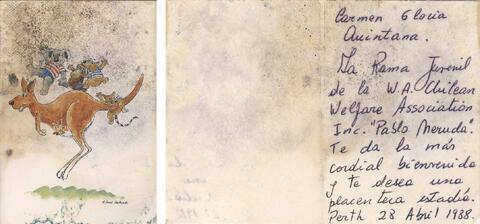 Carmen Gloria
Quintana.
La Rama Juvenil
de la W.A. Chilean
Welfare Association
Inc. "Pablo Neruda".
Te da la más
cordial bienvenida
y te desea una
placentera estadía.
Perth 28 Abril 1988.